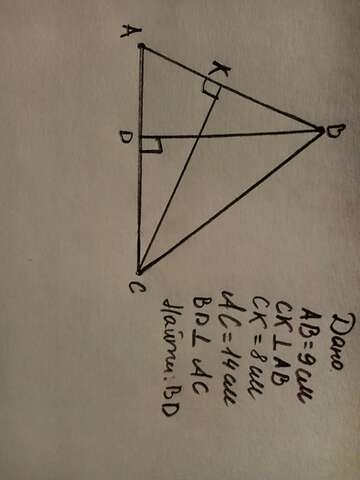 A
K
B
D
C
Дано
AB=9см
CK⊥AB
CK=8см
AC=14см
BD⊥AC
Найти:BD